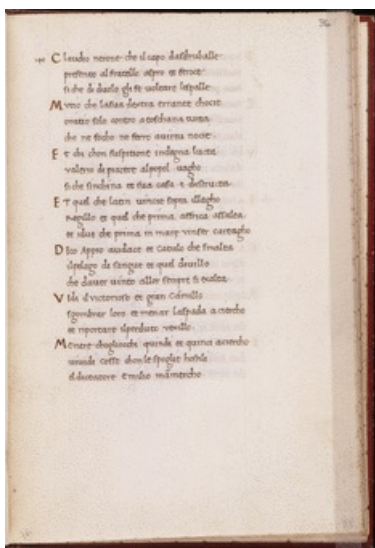 36
Claudio nerone che il capo dasdruballe
presento al fratello aspro et feroce
si che di duolo gli fe voltare lespalle
Mutio che lasua dextra errante chocie
oratio solo contro atoschana tutta
che ne focho ne ferro auirtu noce
Et chi chon suspitione indegna lutta
valerio di piacere alpopol vagho
si che sinchina et sua casa e destrutta
Et quel che latin uincie sopra illagho
regillo et quel che prima affrica assalta
et idue che prima in mare vinser cartagho
Dico Appio audace et Catulo che smalta
ilpelago di sangue et quel duillo
che dauer uinto allor sempre si exalta
Vidi il victorioso et gran Camillo
sgombrar loro et menar laspada aciercho
et riportare ilperduto vexillo
Mentre chogliocchi quindi et quinci acierco
uidi cosso chonle spoglie hostili
el dictatore Emilio mamercho